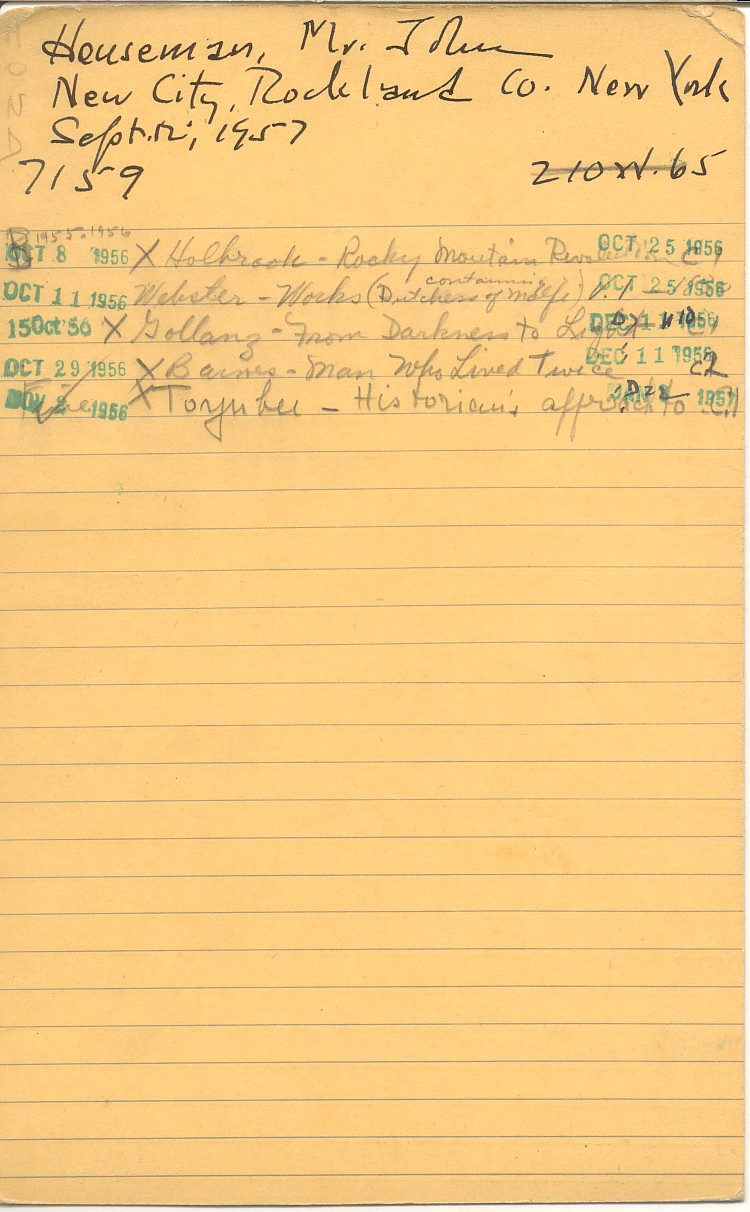 Houseman, Mr. John
New City, Rockland Co. New York
Sept. 12, 1957
7159 210 W. 65
1955-1956
OCT 8 1956 X Holbrook - Rocky Mountain Revolution C1 OCT 25 1956
containing
OCT 11 1956 Webster - Works (Dutchess of Malfi) v.1 OCT 25 1956
15 Oct '56 X Gollanz - From Darkness to Light C1 DEC 11 1956
OCT 29 1956 X Barnes - Man Who Lived Twice C2 DEC 11 1956
NOV 2 1956 X Toynbee - Historian's approach to C11 1957